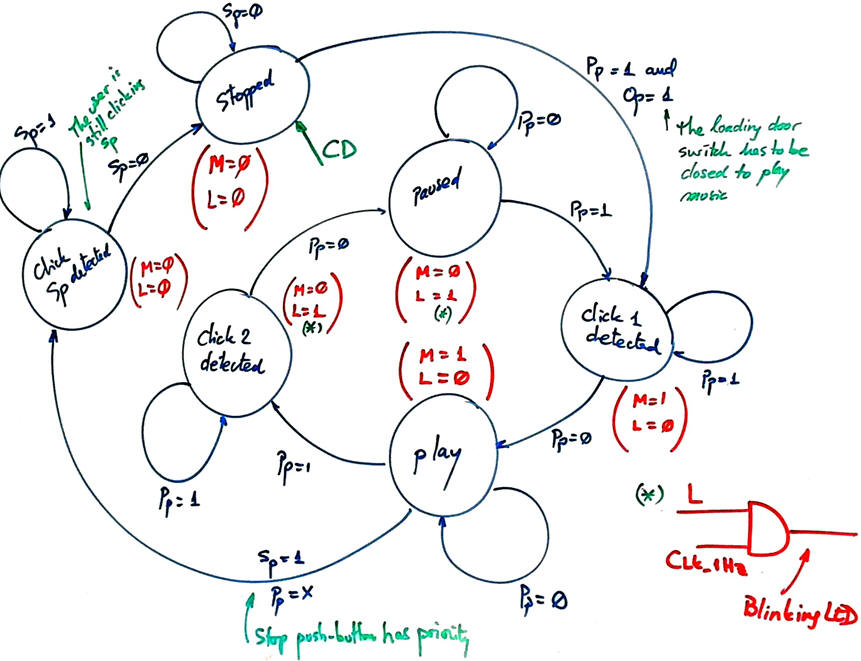 Sp=0
Stopped
Pp = 1 and
Op = 1
The loading door
switch has to be
closed to play
music
The user is
still clicking
Sp
Sp=1
Sp=0
CD
(M=0
L=0)
Paused
Pp=0
Pp=1
Click
Sp detected
(M=0
L=0)
Pp=0
(M=0
L=1
(*))
(M=0
L=1
(*))
Click 1
detected
Click 2
detected
(M=1
L=0)
Pp=1
(M=1
L=0)
play
Pp=0
Pp=1
Pp=1
(*) L
CLK_1Hz
Blinking LED
Sp=1
Pp=X
Pp=0
Stop push-button has priority